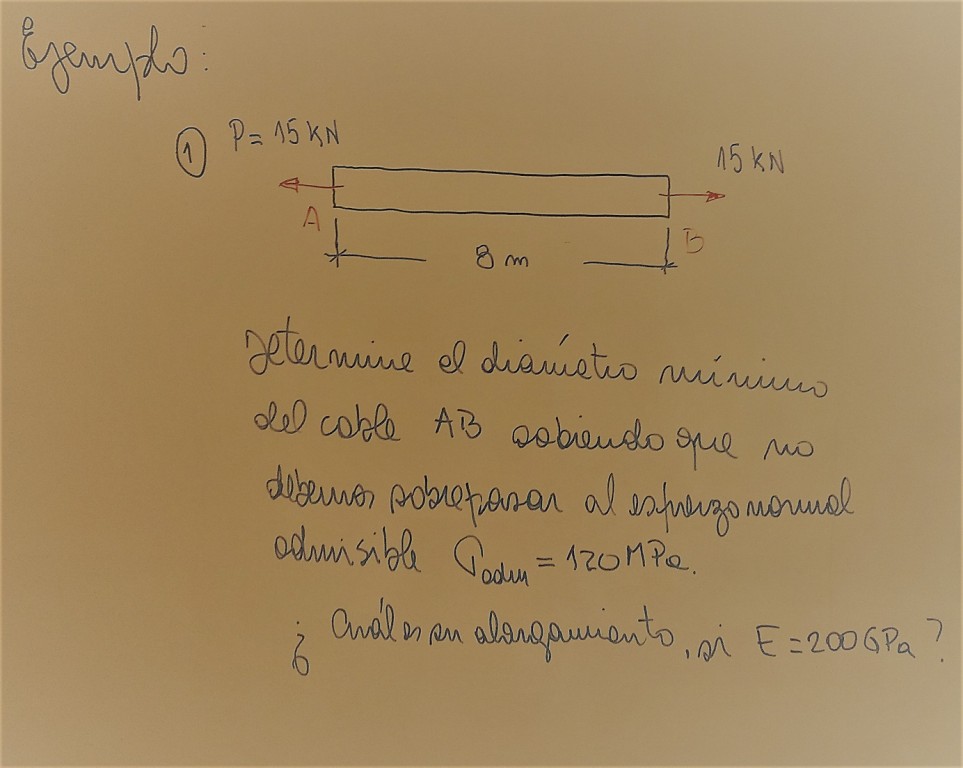 Ejemplo:
① P = 15 kN
15 kN
A
B
8 m
Determine el diámetro mínimo
del cable AB sabiendo que no
debemos sobrepasar al esfuerzo normal
admisible σadm = 120 MPa.
¿ Cuál es su alargamiento, si E = 200 GPa ?